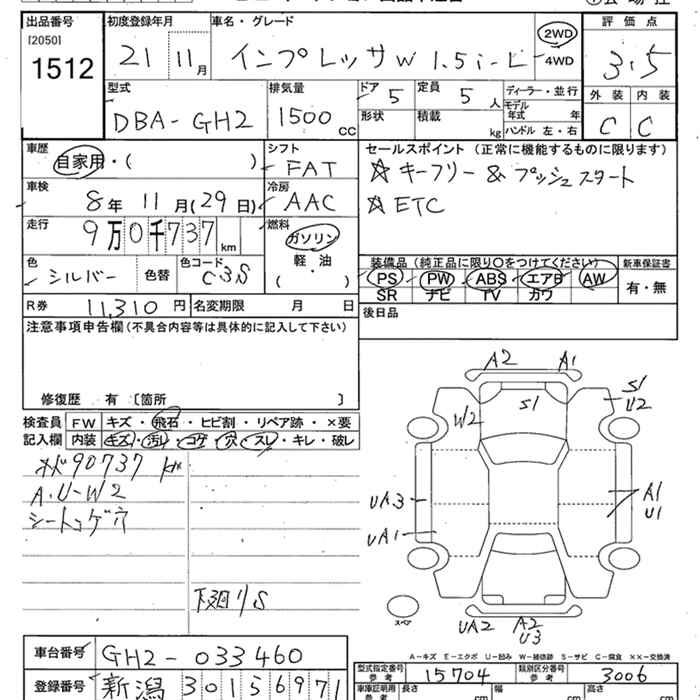 出品番号 初度登録年月 車名・グレード 評価点
[2050]
1512 21 11月 インプレッサW 1.5i-L 2WD 4WD 3.5
外装 内装
C C
型式 排気量 ドア 定員 ディーラー・並行
DBA-GH2 1500cc 5 5人 モデル年式 年
形状 積載 kg ハンドル 左・右
車歴 シフト セールスポイント (正常に機能するものに限ります)
自家用・( ) FAT ☆ キーフリー & プッシュスタート
車検 冷房 ☆ ETC
8年 11月(29日) AAC
走行 燃料
9万0千737km ガソリン
軽・油
( )
色 色コード 装備品 (純正品に限り○をつけてください) 新車保証書
シルバー 色替 C3S PS PW ABS エアB AW 有・無
SR ナビ TV カワ
R券 11,310円 名変期限 月 日 後日品
注意事項申告欄(不具合内容等は具体的に記入して下さい)
修復歴 有 〔箇所 〕
検査員 FW キズ・飛石・ヒビ割・リペア跡・×要
記入欄 内装 キズ・汚レ・コゲ・穴・スレ・キレ・破レ
90737
A.U-W2
シートコゲ穴
下廻りS
A2 A1
S1
U2
W2 S1
UA3
UA1
A1
U1
スペア
UA2 A2
U3
A-キズ E-エクボ U-凹み W-補修跡 S-サビ C-腐食 ××-交換済
車台番号 GH2-033460
型式指定番号 参考 15704 類別区分番号 参考 3006
登録番号 新潟 301 5 6971
車庫証明用 参考 長さ cm 幅 cm 高さ cm